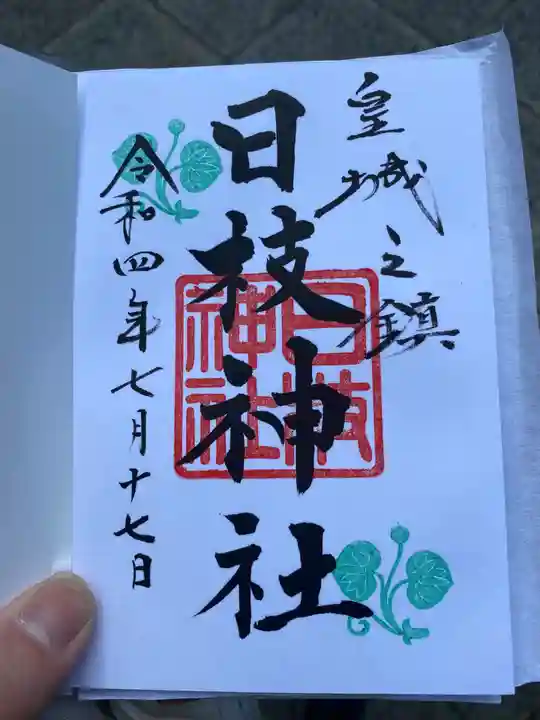 皇城之鎮
日枝神社
日枝
神社
令和四年七月十七日